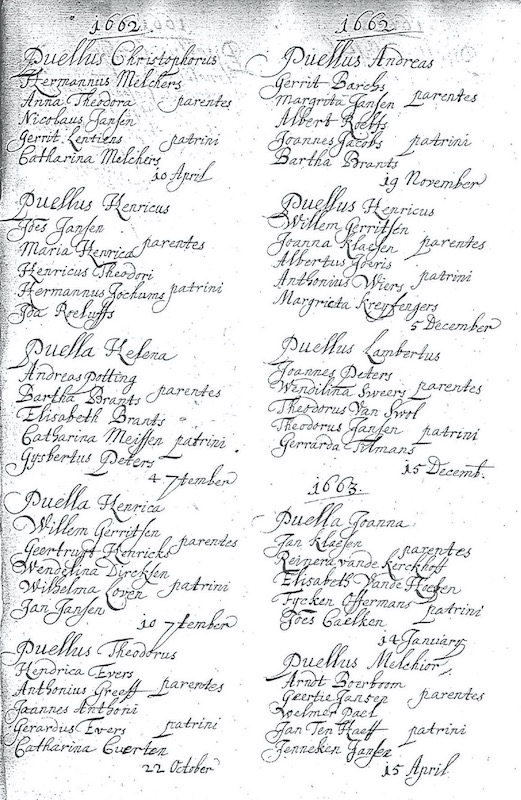 1662
Puellus Christophorus
Hermannus Melchers
Anna Theodora parentes
Nicolaus Jansen
Gerrit Lentiens patrini
Catharina Melchers
10 April
Puellus Henricus
Joes Jansen
Maria Henrica parentes
Henricus Theodori
Hermannus Jochums patrini
Ida Roeluffs
Puella Helena
Andreas Potting
Bartha Brants parentes
Elisabeth Brants
Catharina Meissen patrini
Gysbertus Peters
4 7tember
Puella Henrica
Willem Gerritsen
Geertruyt Henricks parentes
Wendelina Dircksen
Wilhelma Loven patrini
Jan Jansen
10 7tember
Puellus Theodorus
Hendrica Evers
Anthonius Greeff parentes
Joannes Anthoni
Gerardus Evers patrini
Catharina Everten
22 October
1662
Puellus Andreas
Gerrit Barchs
Margrita Jansen parentes
Albert Roeffs
Joannes Jacobs patrini
Bartha Brants
19 November
Puellus Henricus
Willem Gerritsen
Joanna Klaesen parentes
Albertus Joeris
Anthonius Wiers patrini
Margrieta Kreyfengers
5 December
Puellus Lambertus
Joannes Peters
Wendilina Sweers parentes
Theodorus Van Swol
Theodorus Jansen patrini
Gerrarda Tilmans
15 Decemb.
1663.
Puella Joanna
Jan Klaesen
Reinera vande Kerckhoff parentes
Elisabeth Vande Hoeken
Fycken Offermans patrini
Joes Caelken
14 January
Puellus Melchior
Arndt Boerboom
Geertie Jansen parentes
Welmer Pael
Jan Ten Haeff patrini
Jenneken Jansen
15 April